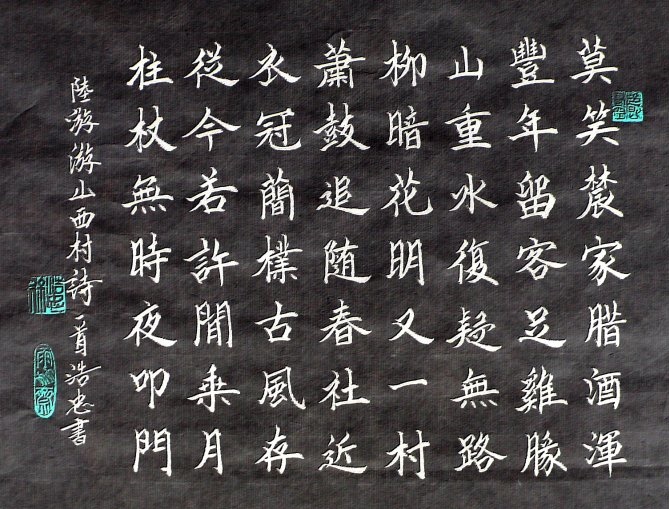 莫笑農家腊酒渾
豐年留客足雞豚
山重水復疑無路
柳暗花明又一村
蕭鼓追随春社近
衣冠簡樸古風存
從今若許閒乘月
柱杖無時夜叩門
陸游游山西村詩一首浩忠書